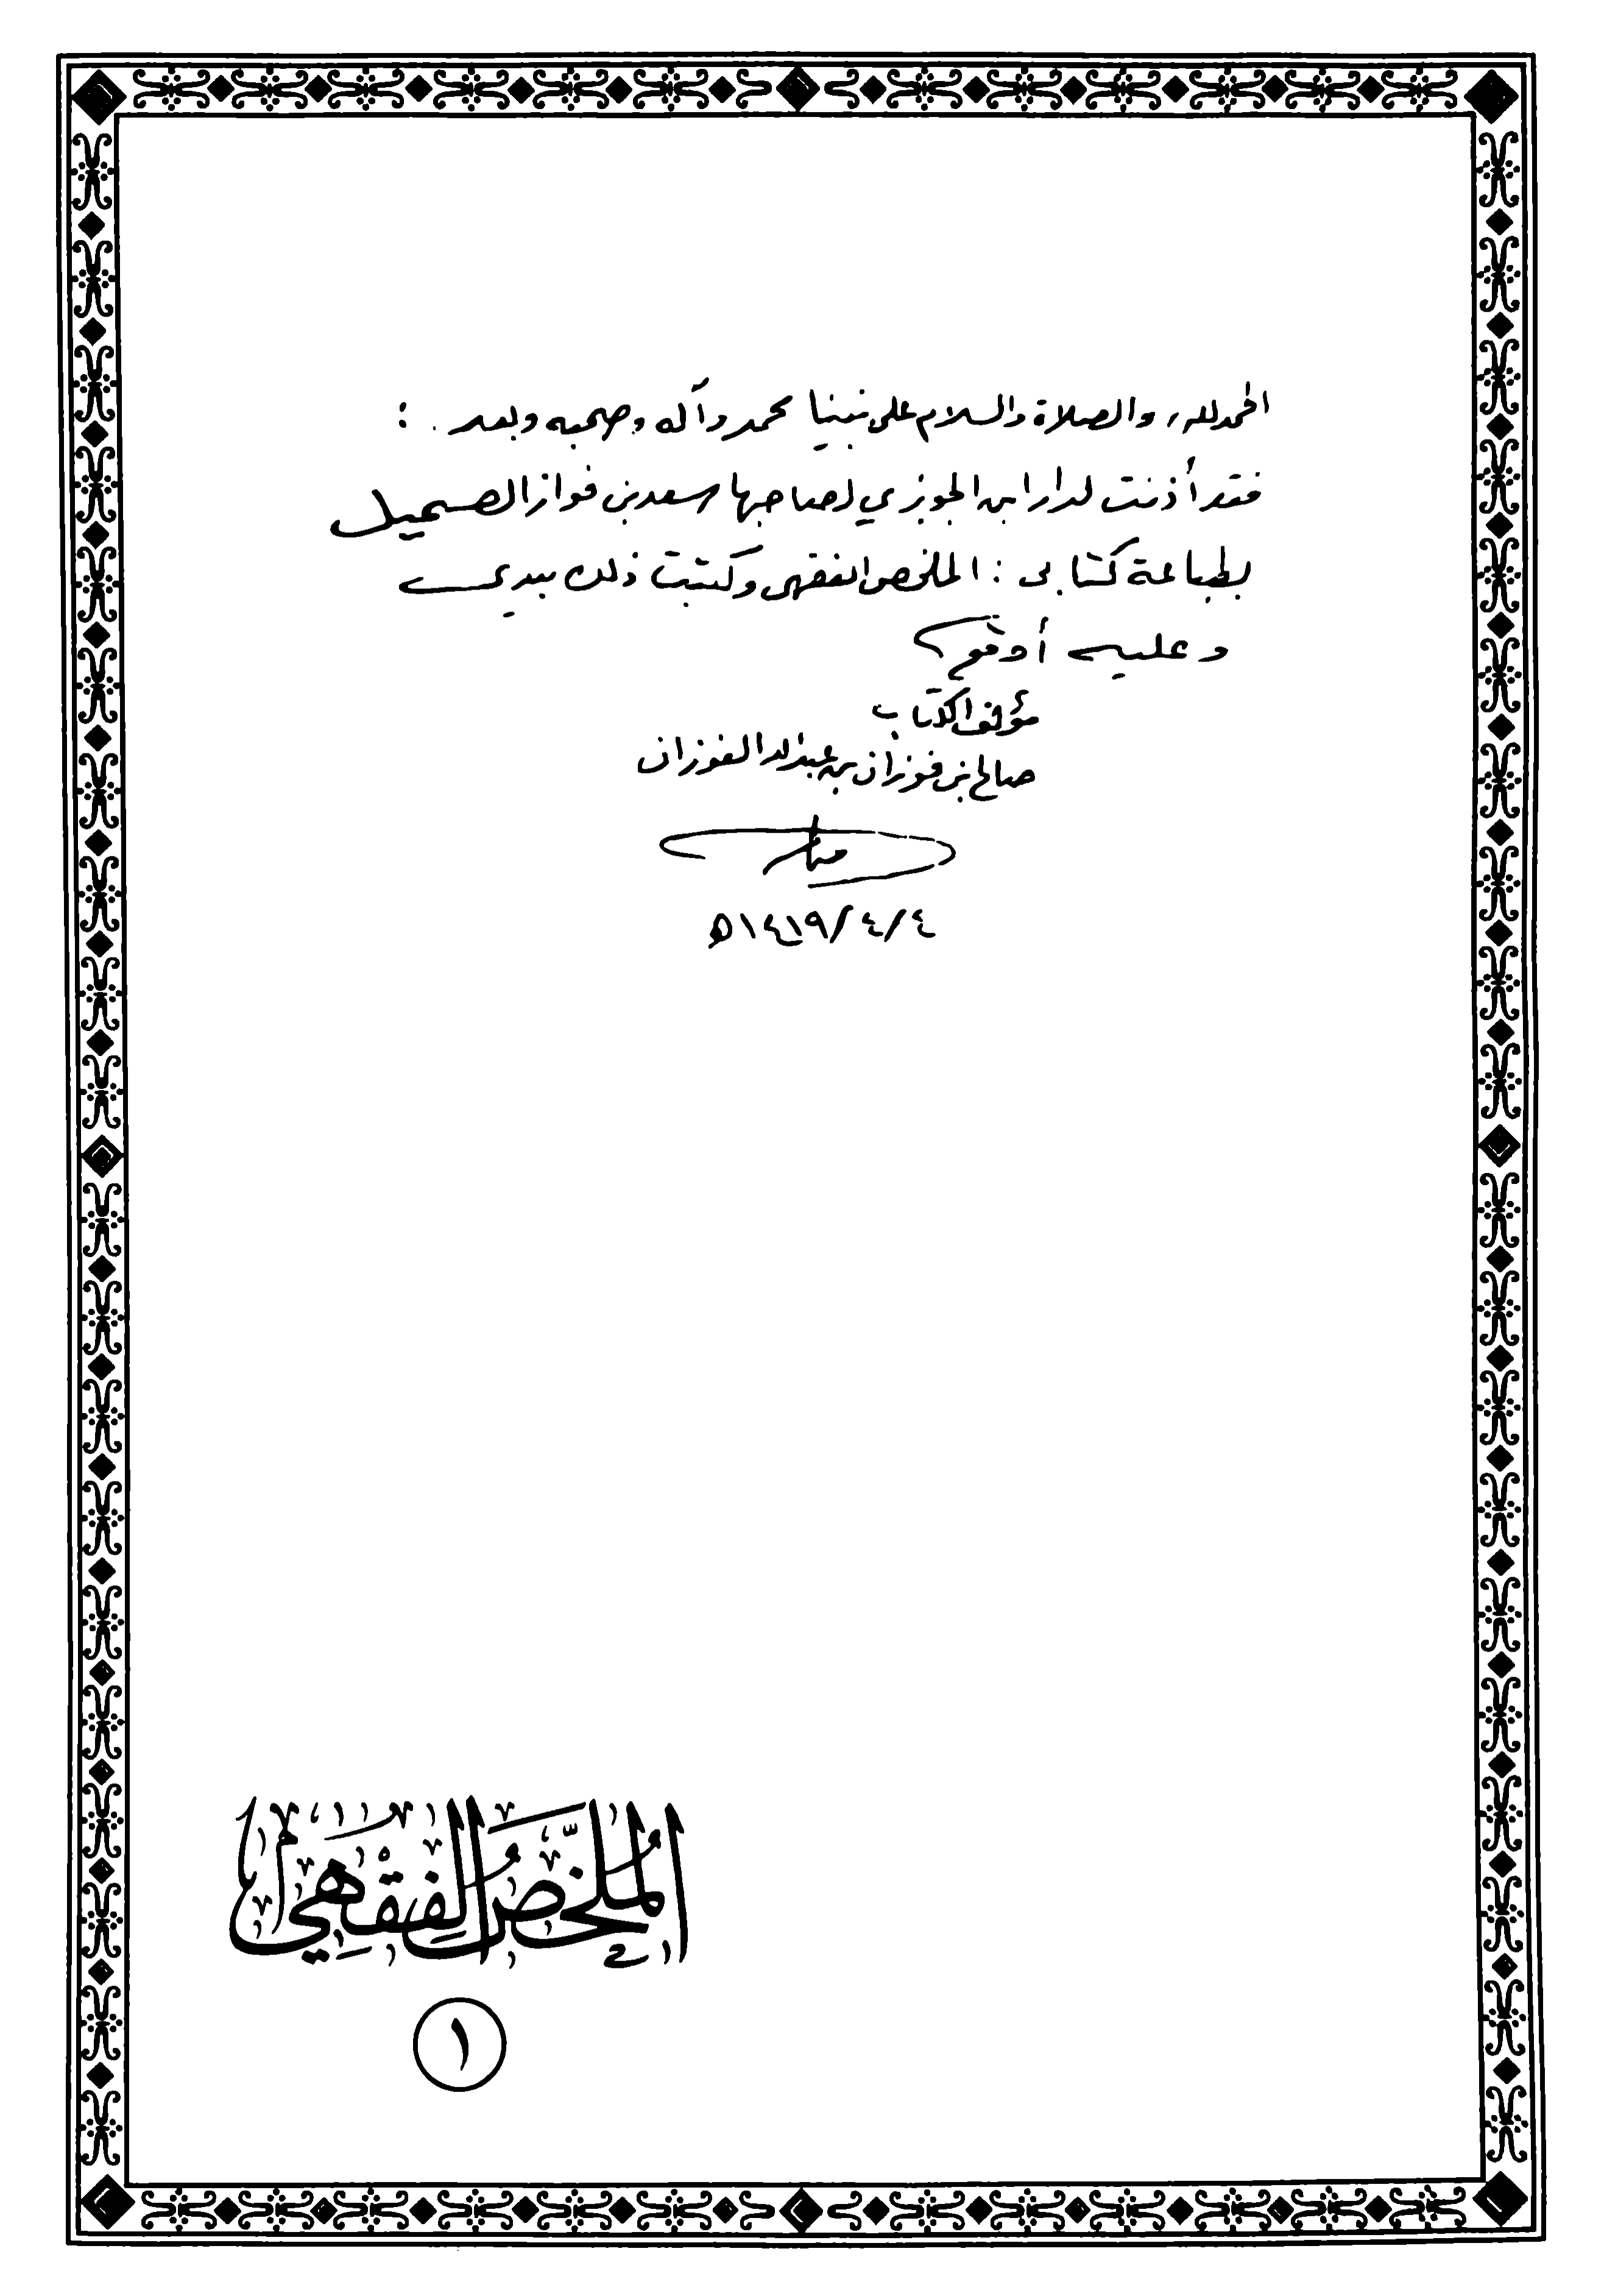 الحمد لله، والصلاة والسلام على نبينا محمد وآله وصحبه وبعد :
فقد أذنت لدار ابن الجوزي لصاحبها سعد بن فواز الصميل
بطباعة كتابي : الملخص الفقهي وكتبت ذلك بيدي
وعليه أوقع
مؤلف الكتاب
صالح بن فوزان بن عبد الله الفوزان
٤/٤/١٤١٩ه
المُلخَّصُ الفِقْهِي
١